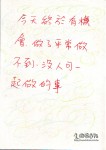 今天終於有機
會做了平常做
不到、沒人可一
起做的事